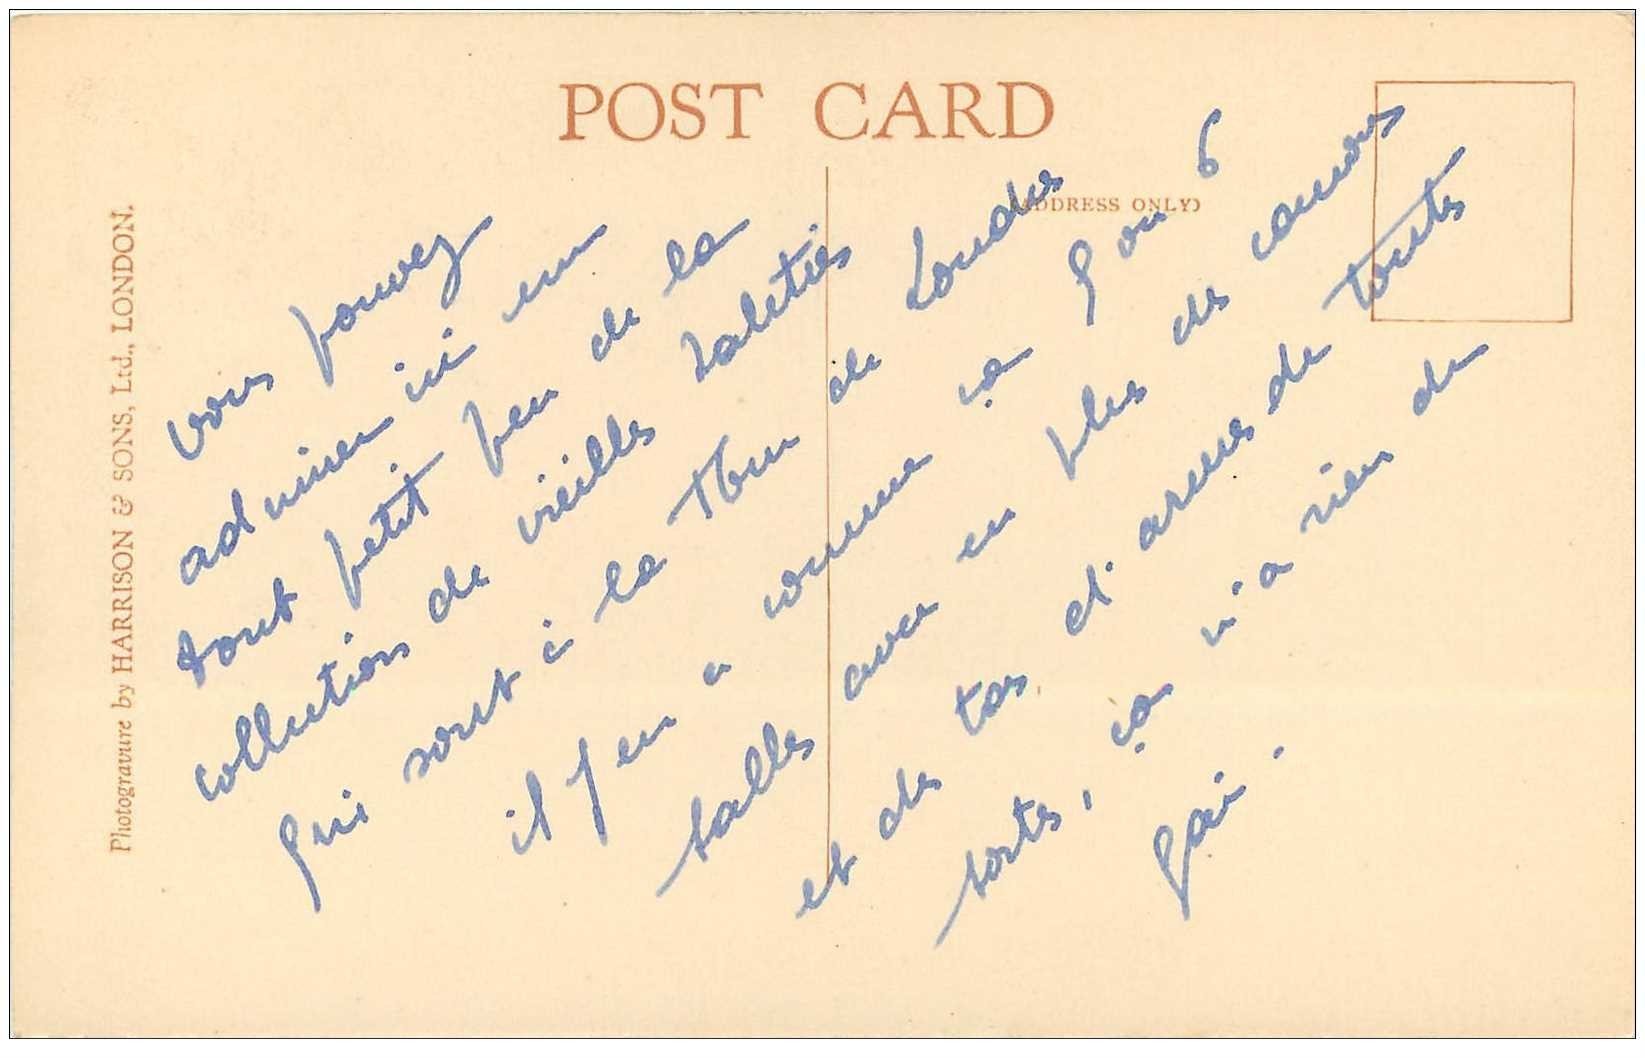 POST CARD
(ADDRESS ONLY)
Photogravure by HARRISON & SONS, Ltd., LONDON.
vous pouvez
admirer ici un
tout petit peu de la
collection de vieilles saletés
qui sont à la Tour de Londres
il y en a comme ça 5 ou 6
salles avec en plus des canons
et des tas d'armes de toutes
sortes, ça n'a rien de
gai.